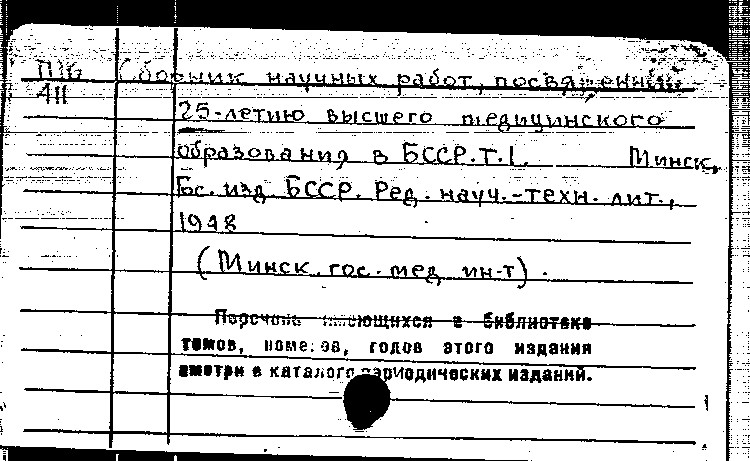 П16 Сборник научных работ, посвященный
411
25-летию высшего медицинского
образования в БССР. Т. I. Минск,
Гос. изд. БССР. Ред. науч.-техн. лит.,
1948
(Минск. гос. мед. ин-т).
Перечень имеющихся в библиотеке
томов, номеров, годов этого издания
смотри в каталоге периодических изданий.